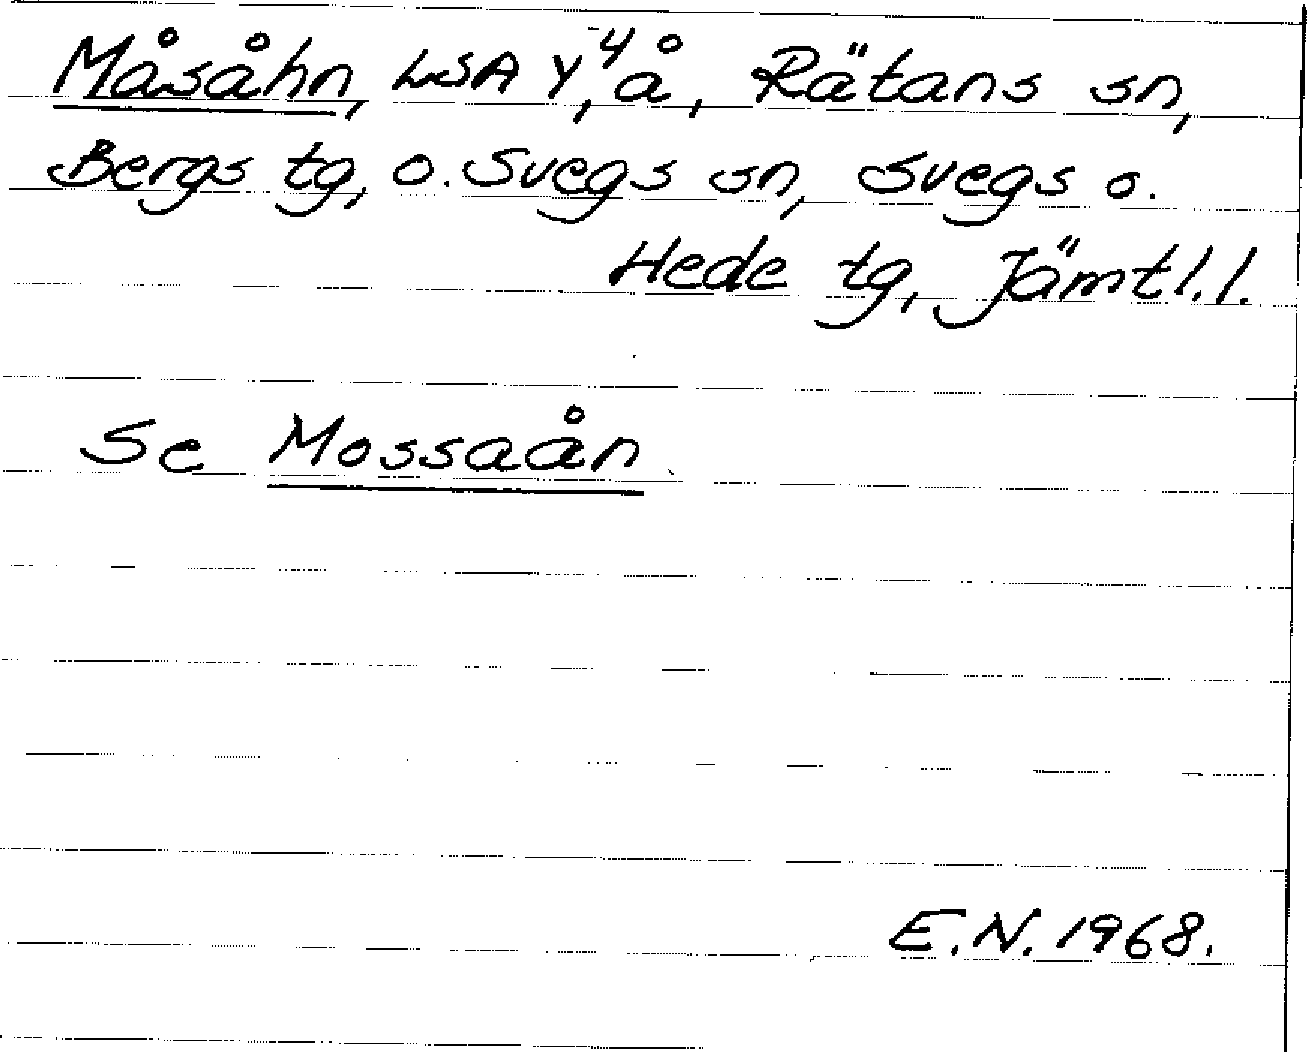 Måsåhn, LSA Y⁴, å, Rätans sn,
Bergs tg, o. Svegs sn, Svegs o.
Hede tg, Jämtl.l.
Se Mossaån.
E.N. 1968.